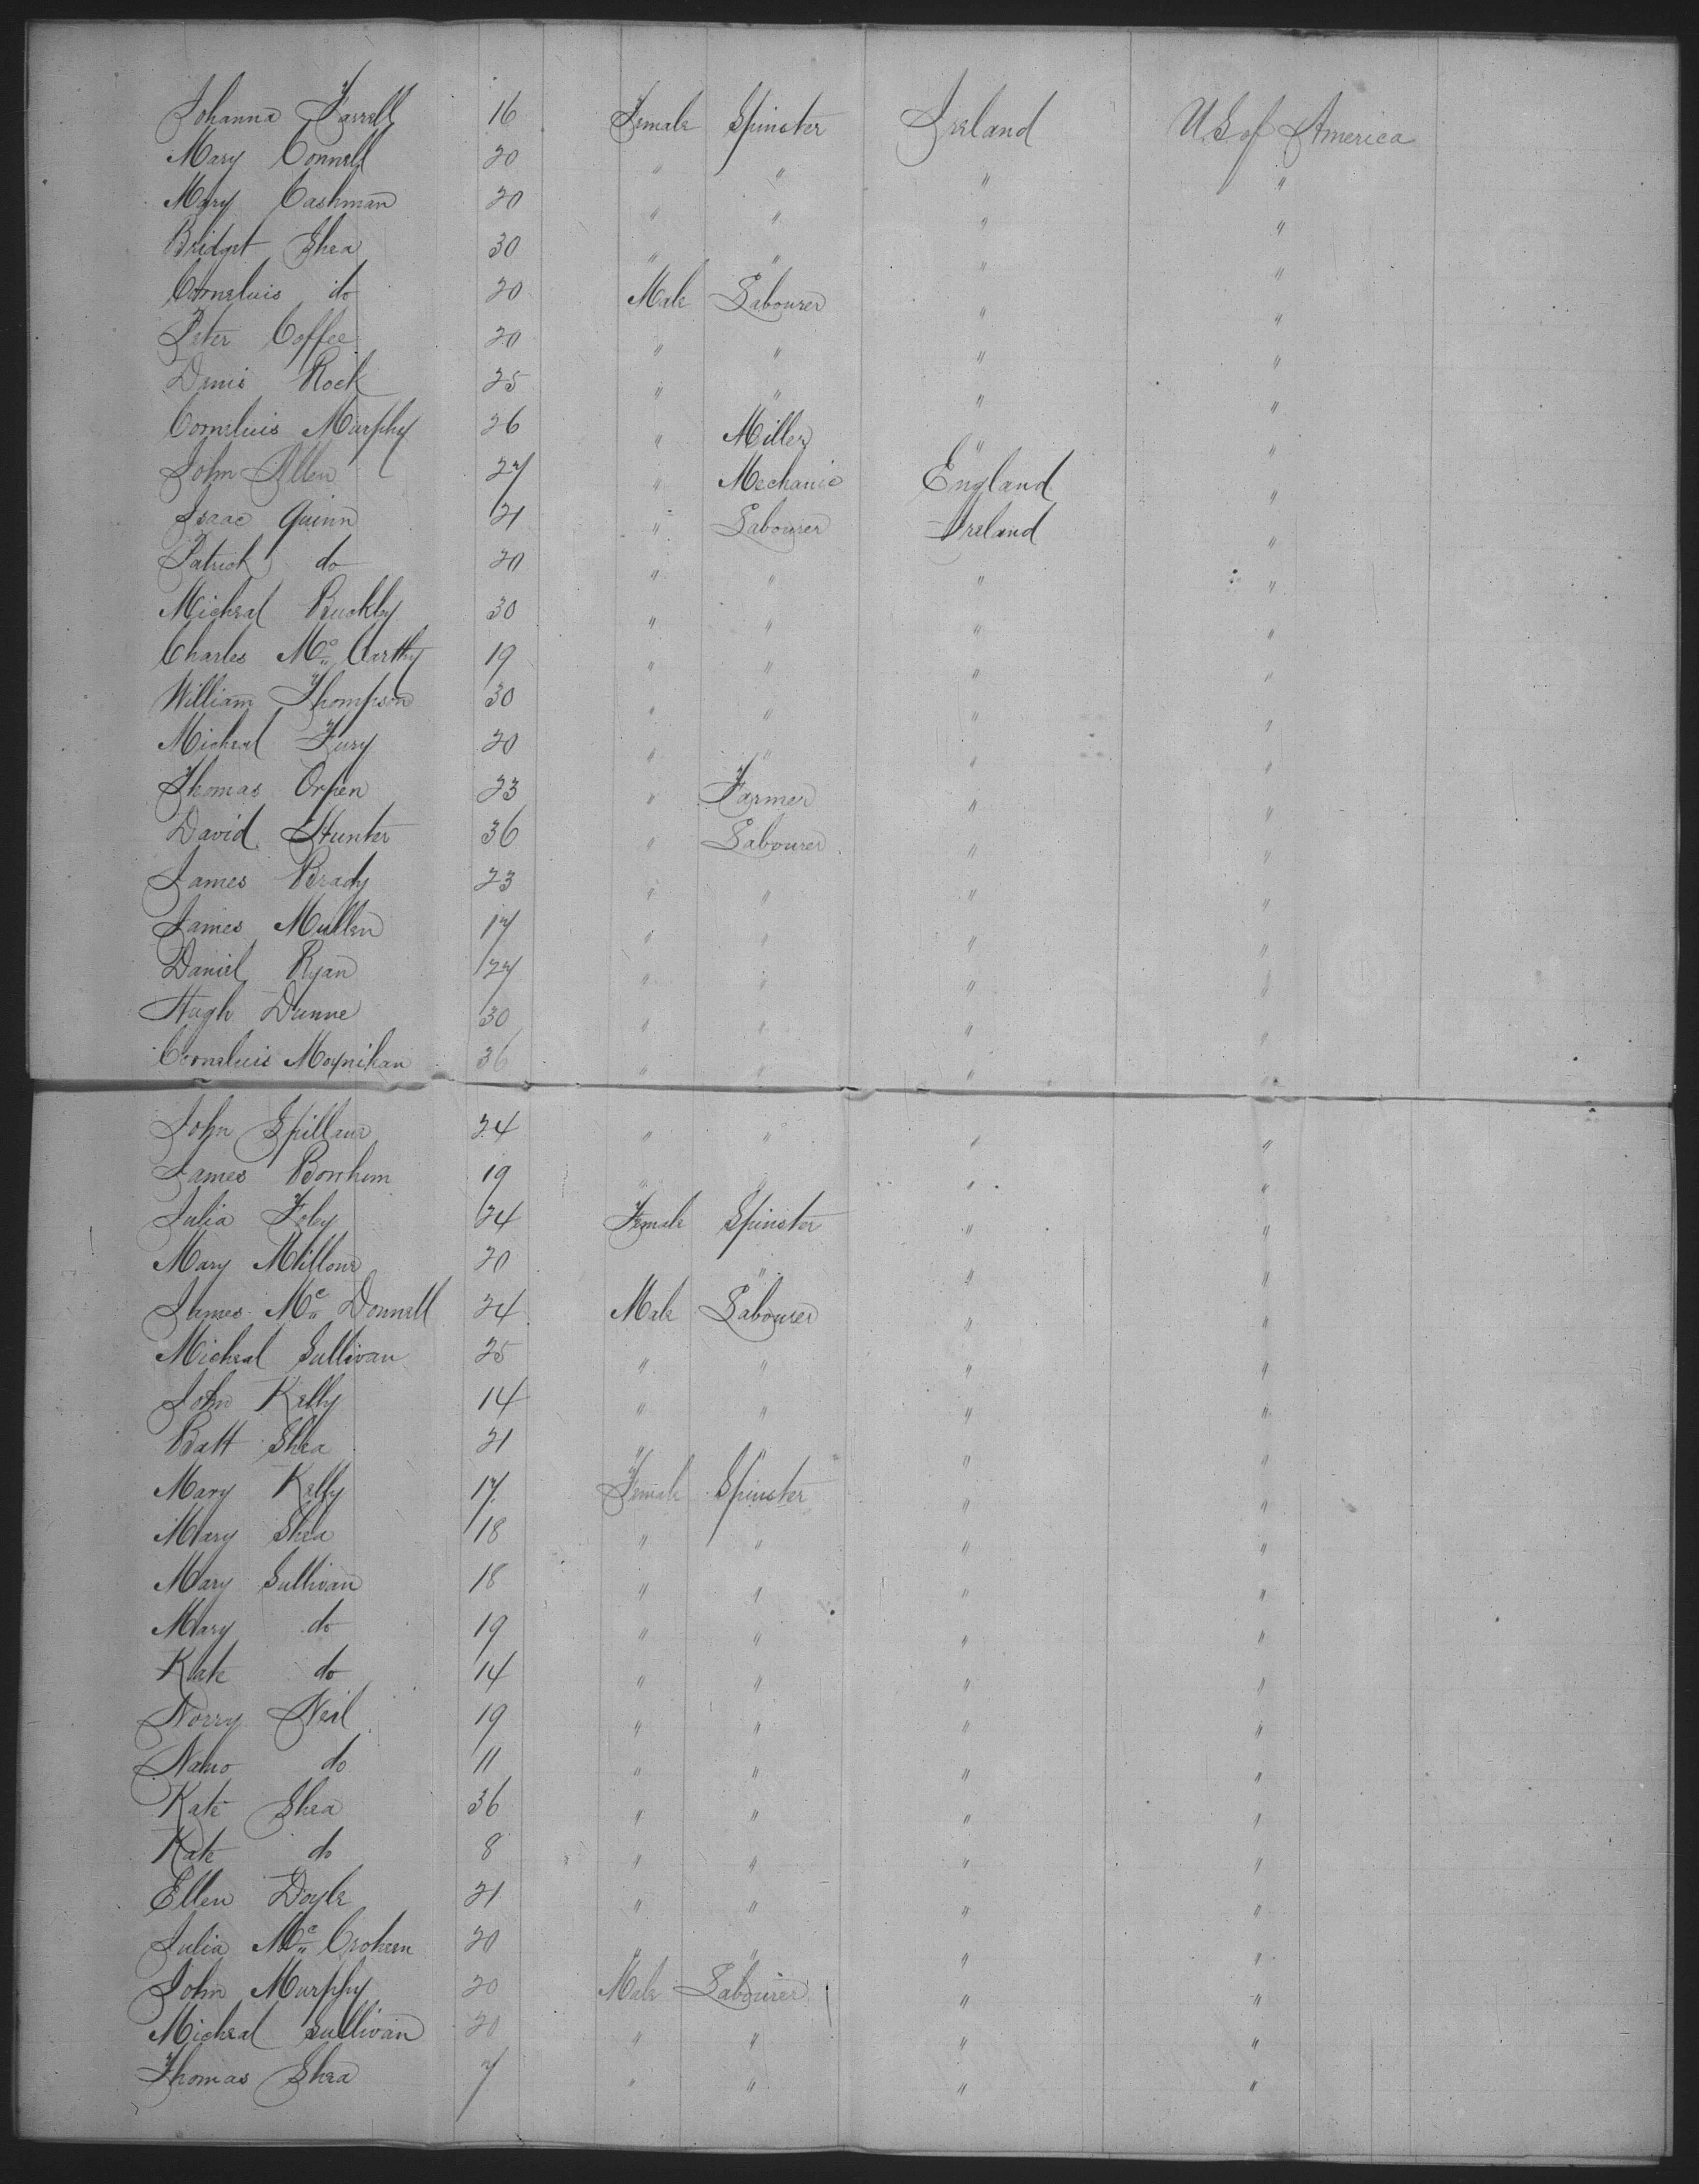 Johanna Farrell 16 Female Spinster Ireland U S of America
Mary Connell 20 " " " "
Mary Cashman 20 " " " "
Bridget Shea 30 " " " "
Corneluis do 20 Male Labourer " "
Peter Coffee 20 " " " "
Denis Rock 25 " " " "
Corneluis Murphy 26 " Miller " "
John Allen 27 " Mechanic England "
Isaac Quinn 21 " Labourer Ireland "
Patrick do 20 " " " "
Micheal Buckley 30 " " " "
Charles Mc Carthy 19 " " " "
William Thompson 30 " " " "
Micheal Fury 20 " " " "
Thomas Orpen 23 " Farmer " "
David Hunter 36 " Labourer " "
James Brady 23 " " " "
James Mullen 17 " " " "
Daniel Ryan 27 " " " "
Hugh Dunne 30 " " " "
Corneluis Moynihan 36 " " " "
John Spillane 24 " " " "
James Bonhem 19 " " " "
Julia Foley 24 Female Spinster " "
Mary Millone 20 " " "
James Mc Donnell 24 Male Labourer " "
Micheal Sullivan 25 " " " "
John Kelly 14 " " " "
Batt Shea 21 " " " "
Mary Kelly 17 Female Spinster " "
Mary Shea 18 " " " "
Mary Sullivan 18 " " " "
Mary do 19 " " " "
Kate do 14 " " " "
Norry Neil 19 " " " "
do 11 " " " "
Kate Shea 36 " " " "
Kate do 8 " " " "
Ellen Doyle 21 " " " "
Julia Mc Croheen 20 " " " "
John Murphy 20 Male Labourer " "
Micheal Sullivan 20 " " " "
Thomas Shea 7 " " " "